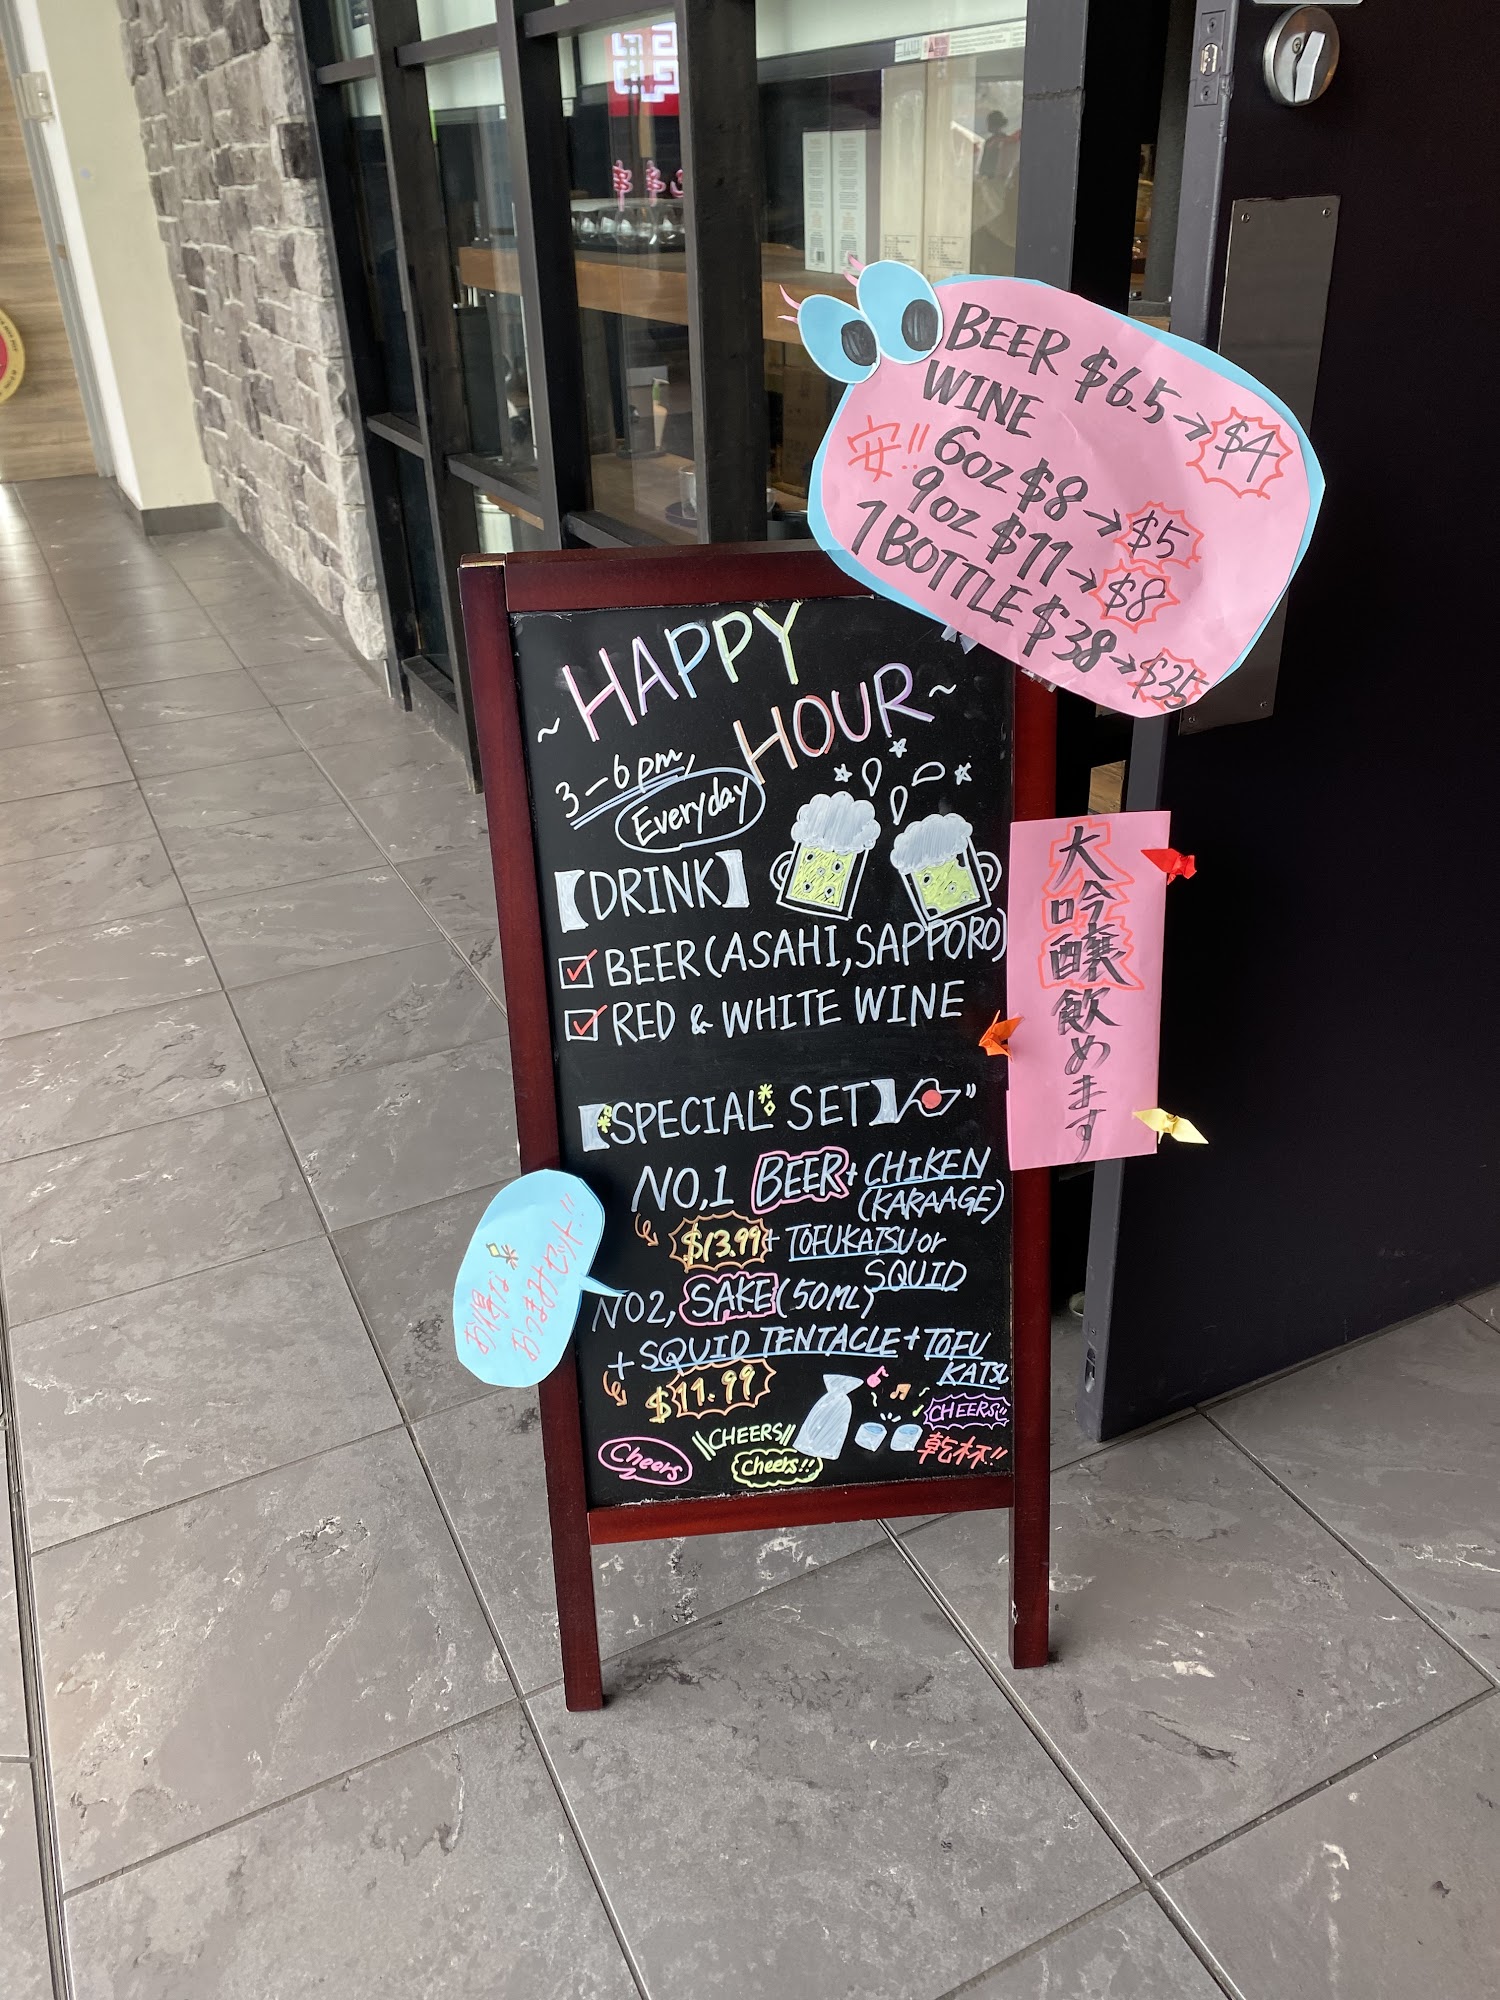 BEER $6.5→$4
WINE
安!!
6oz $8→$5
9oz $11→$8
1 BOTTLE $38→$35
~HAPPY
HOUR~
3-6pm,
Everyday
【DRINK】
☑ BEER (ASAHI, SAPPORO)
☑ RED & WHITE WINE
大吟醸飲めます
【SPECIAL SET】
NO,1 BEER + CHIKEN
(KARAAGE)
$13.99 + TOFUKATSU or
SQUID
NO2, SAKE (50ML)
+ SQUID TENTACLE + TOFU
KATSU
$11.99
CHEERS!!
CHEERS!!
Cheers
Cheers!!
乾杯!!